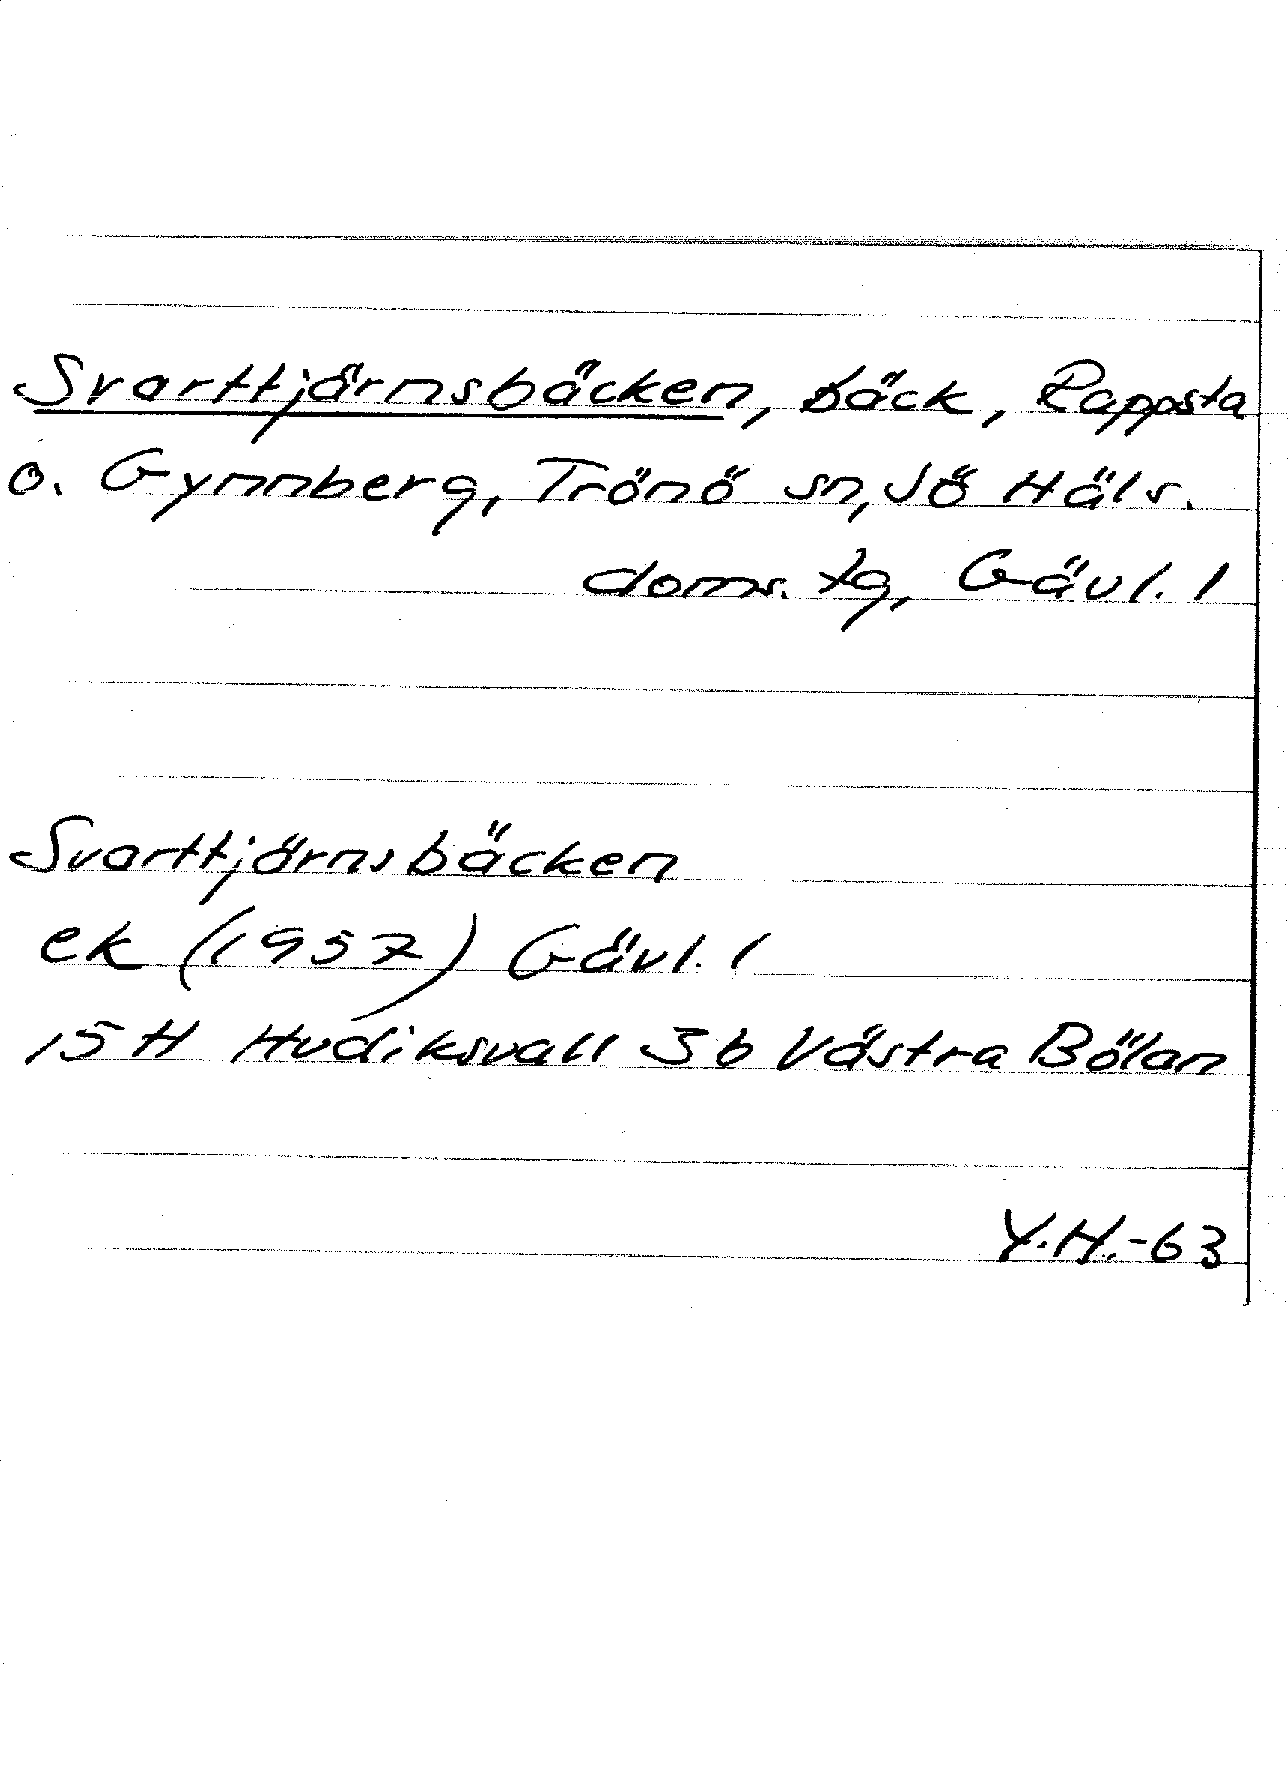 Svarttjärnsbäcken, bäck, Rappsta
o. Gynnberg, Trönö sn, Sö Häls.
doms. tg, Gävl. l
Svarttjärnsbäcken
ek (1957) Gävl. l
15 H Hudiksvall 3b Västra Bölan
Y.H.-63